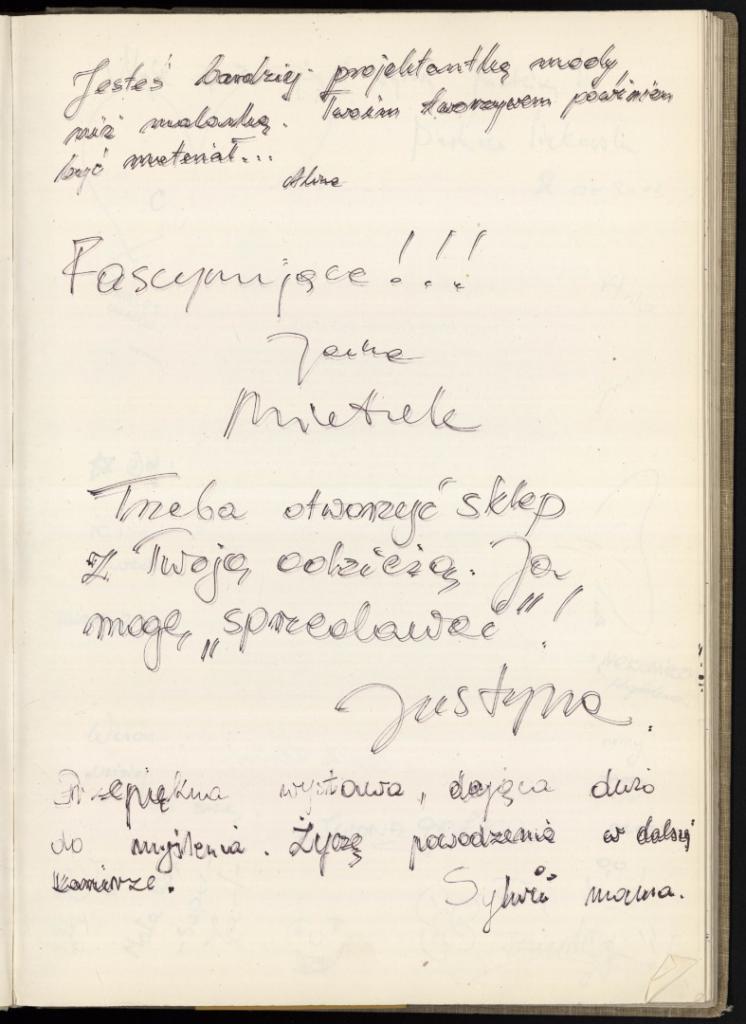 Jesteś bardziej projektantką mody
niż malarką. Twoim tworzywem powinien
być materiał...
Alina
Fascynujące!!!
Janka
Mietek
Trzeba otworzyć sklep
z Twoją odzieżą. Ja
mogę „sprzedawać”!
Justyna.
Przepiękna wystawa, dająca dużo
do myślenia. Życzę powodzenia w dalszej
karierze.
Sylwii mama.